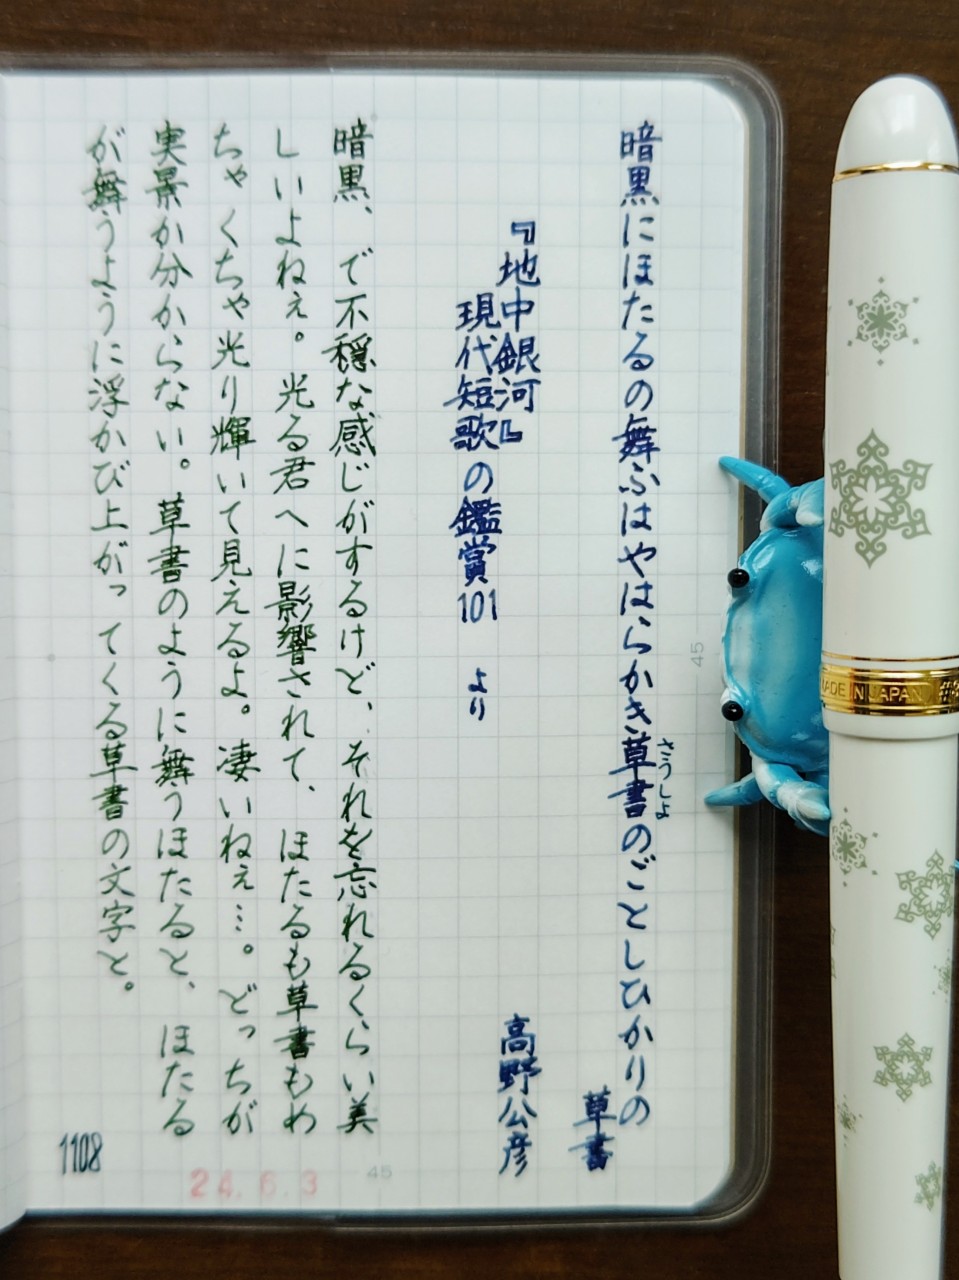 暗黒にほたるの舞ふはやはらかき草書のごとしひかりの
さうしよ
草書
『地中銀河』
高野公彦
現代短歌の鑑賞101 より
暗黒、で不穏な感じがするけど、それを忘れるくらい美
しいよねぇ。光る君へに影響されて、ほたるも草書もめ
ちゃくちゃ光り輝いて見えるよ。凄いねぇ…。どっちが
実景か分からない。草書のように舞うほたると、ほたる
が舞うように浮かび上がってくる草書の文字と。
1108
24.6.3
45
45
MADE IN JAPAN